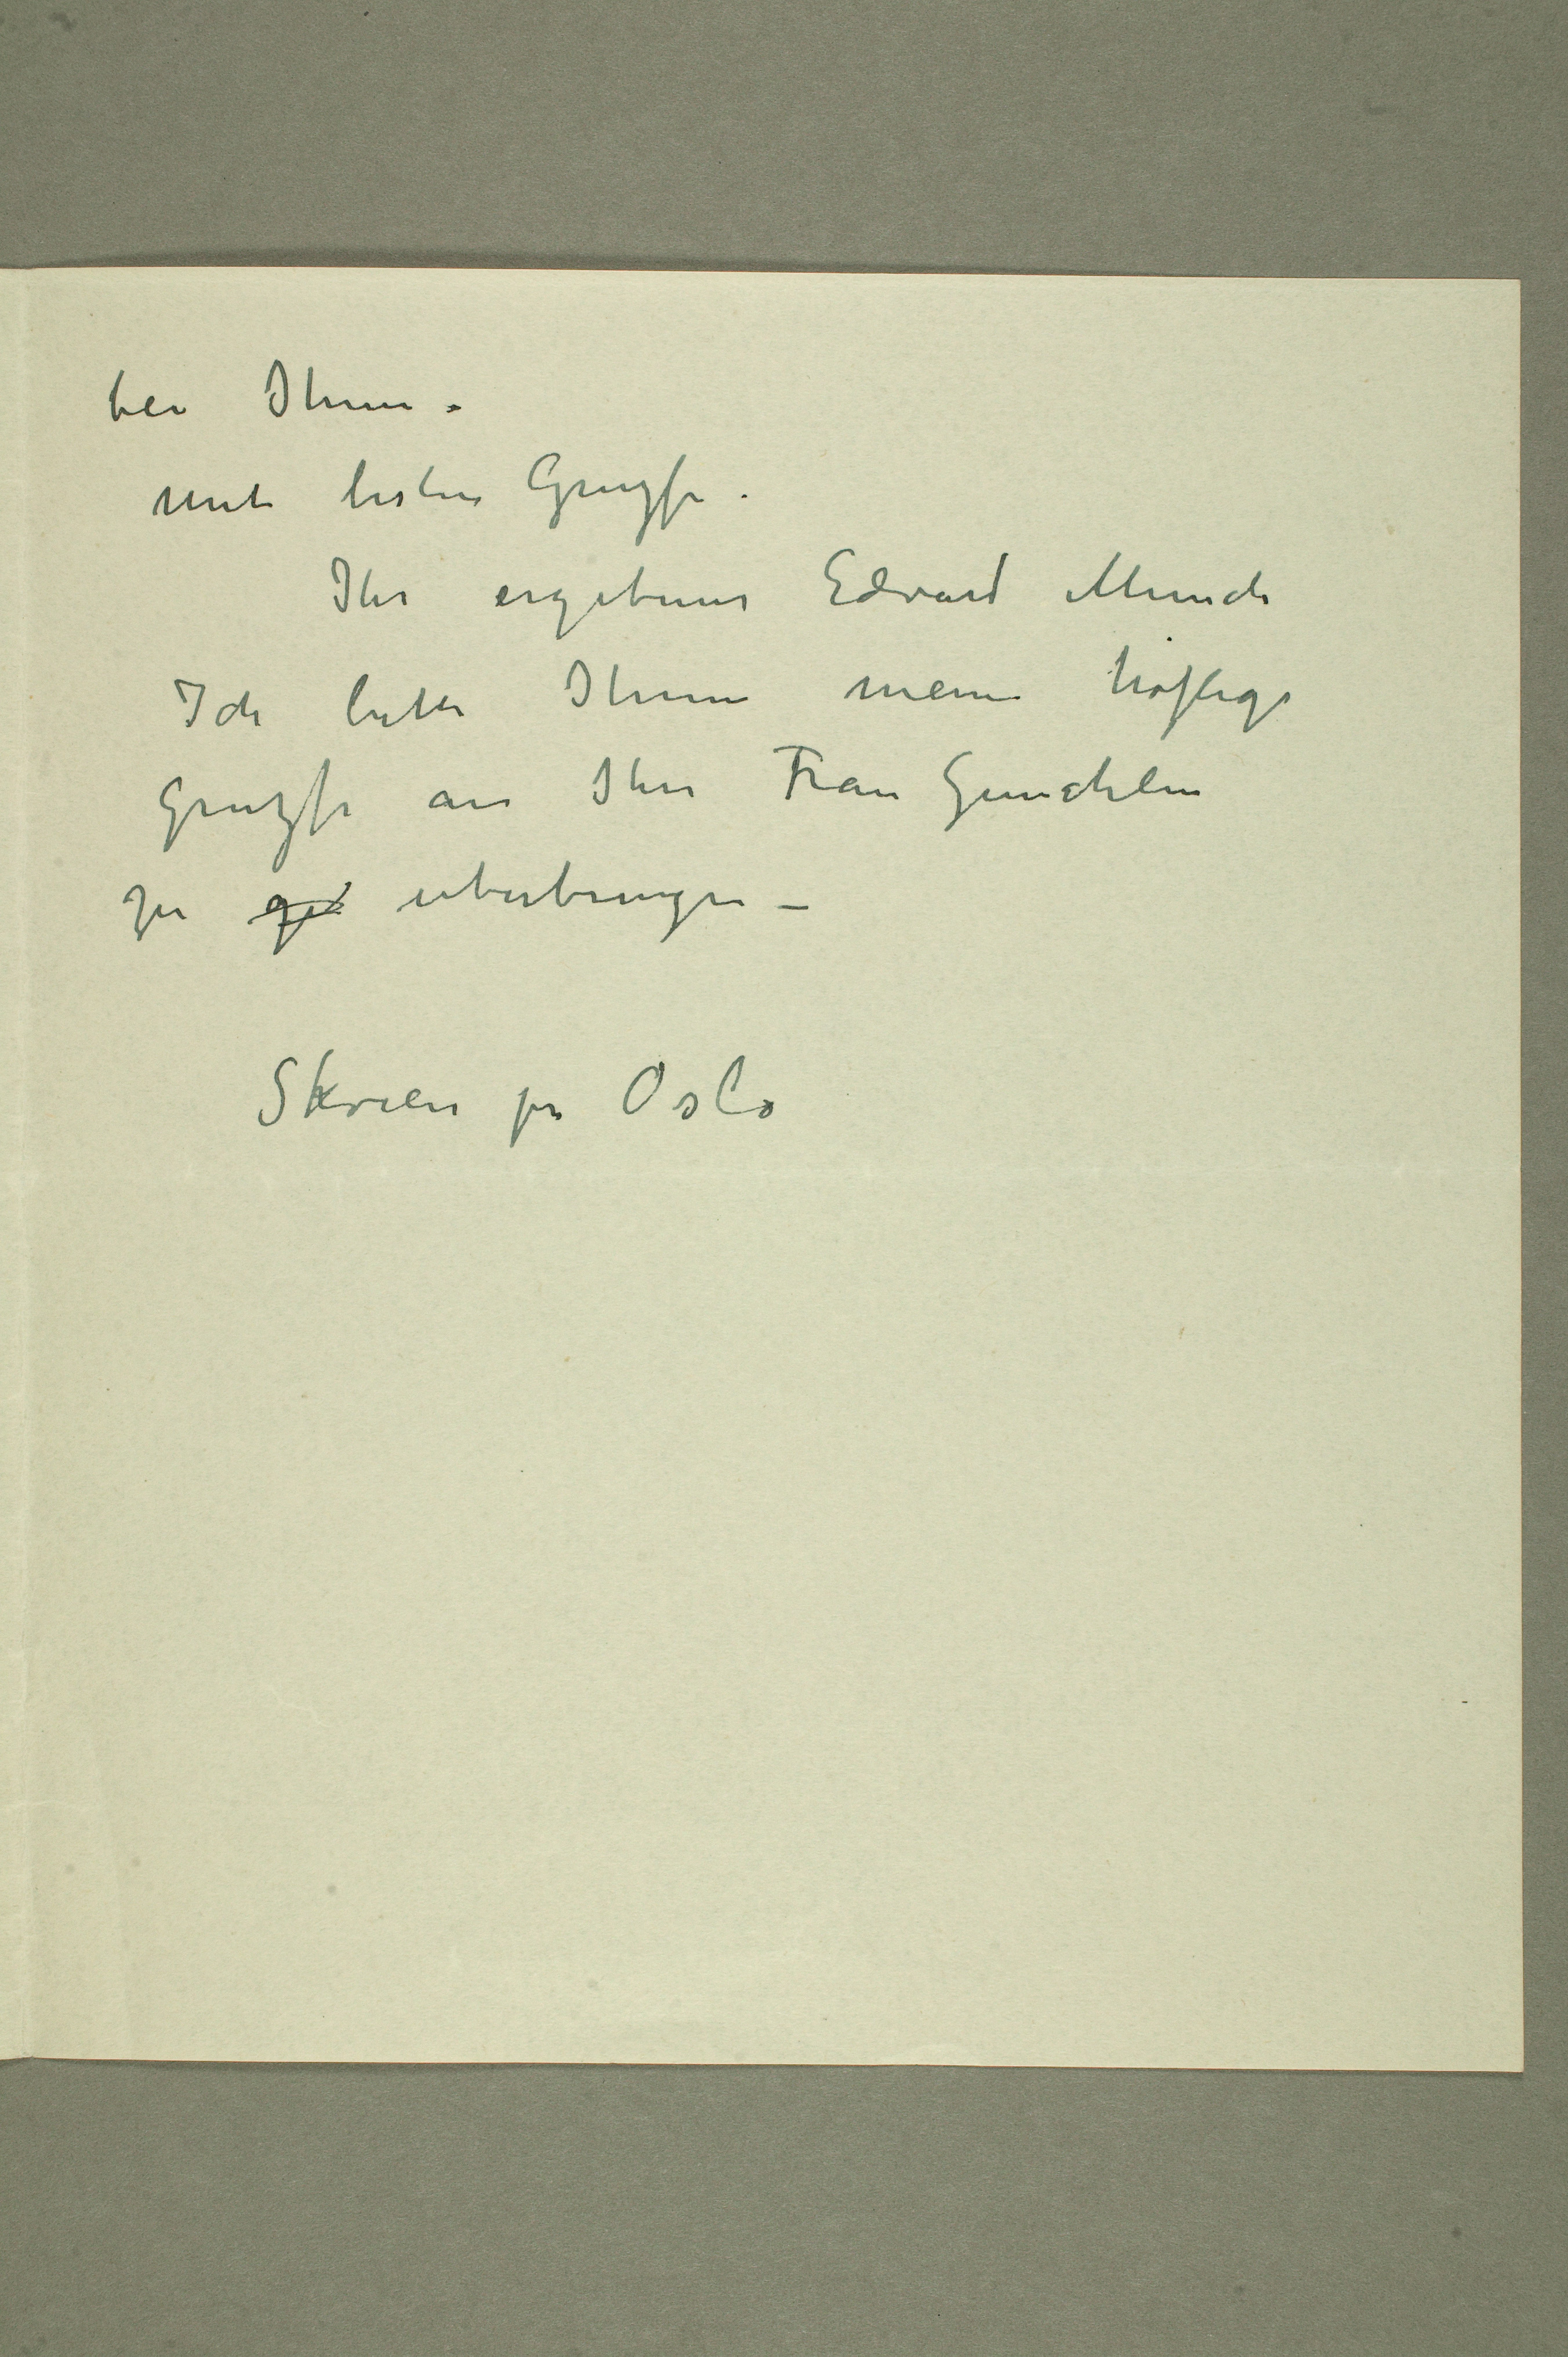 bei Ihnen.
Mit besten Gruzße.
Ihr ergebener Edvard Munch
Ich bitte Ihnen meine höflige
Gruzße an Ihre Frau Gemahlin
zu ge uberbringen –
Skøien pr Oslo